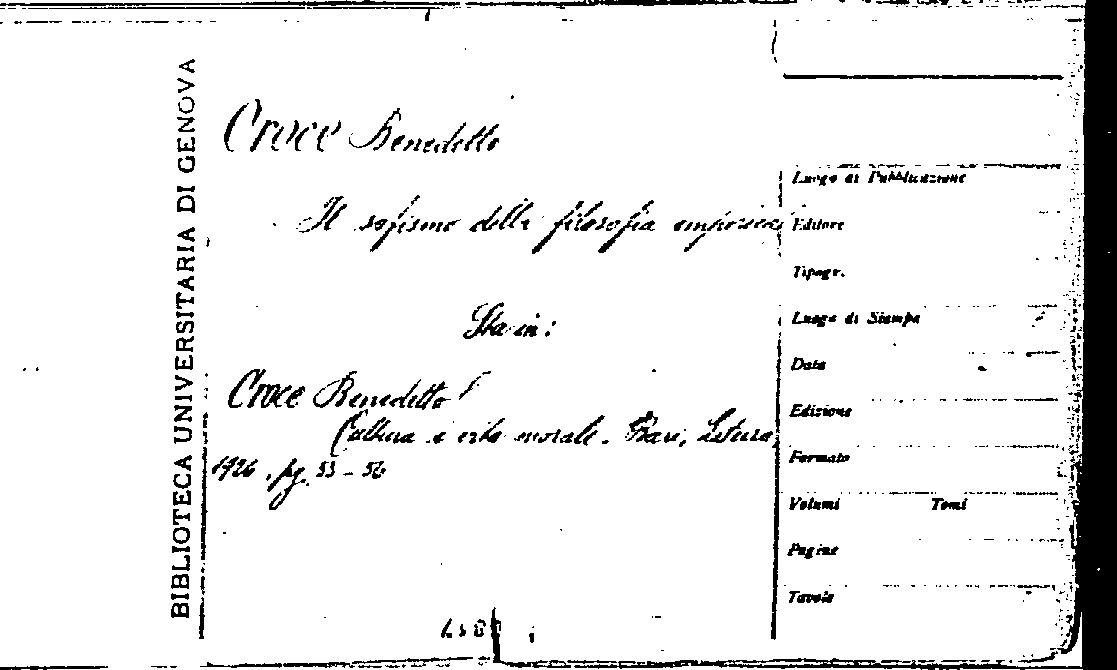 BIBLIOTECA UNIVERSITARIA DI GENOVA
Croce Benedetto
Il sofismo della filosofia empirica
Sta in:
Croce Benedetto
Cultura e vita morale. Bari, Laterza,
1926. pg. 53-56
Luogo di Pubblicazione
Editore
Tipogr.
Luogo di Stampa
Data
Edizione
Formato
Volumi Tomi
Pagine
Tavole